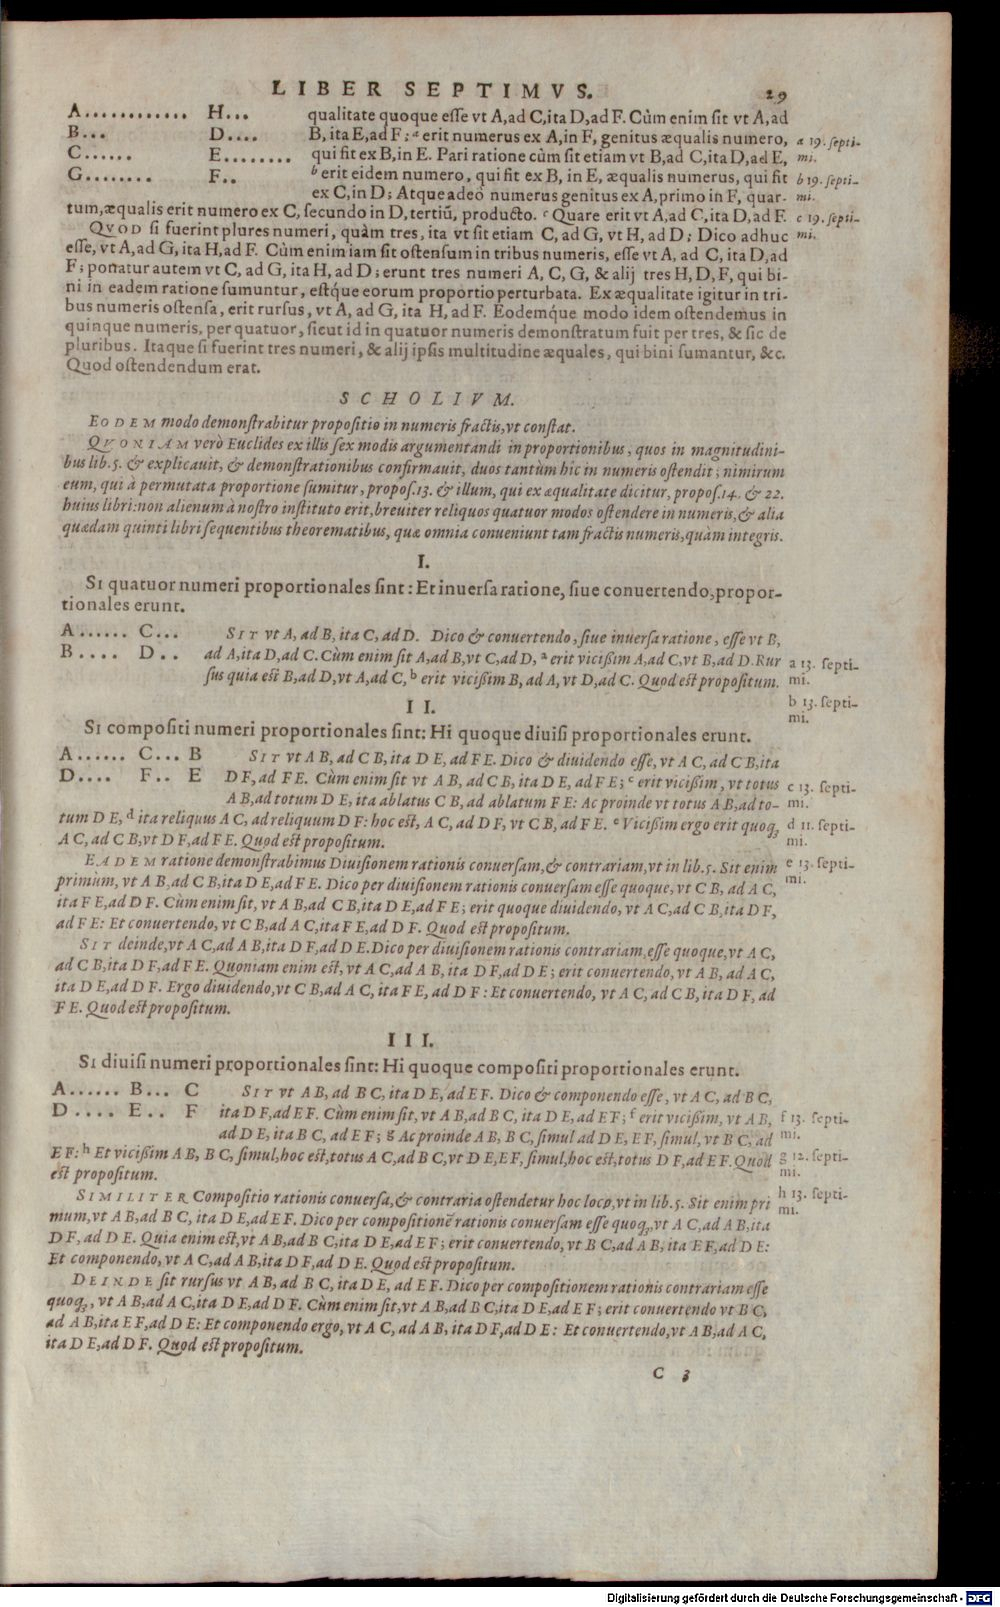 LIBER SEPTIMVS. 29
A............ H... qualitate quoque esse vt A,ad C,ita D,ad F. Cùm enim sit vt A,ad
B... D.... B, ita E,ad F; a erit numerus ex A,in F, genitus æqualis numero, a 19. septi-
C...... E........ qui fit ex B,in E. Pari ratione cùm sit etiam vt B,ad C,ita D,ad E, mi.
G........ F.. b erit eidem numero, qui fit ex B, in E, æqualis numerus, qui fit b 19. septi-
ex C,in D; Atque adeò numerus genitus ex A,primo in F, quar- mi.
tum,æqualis erit numero ex C, secundo in D,tertiũ, producto. c Quare erit vt A,ad C,ita D,ad F. c 19. septi-
QVOD si fuerint plures numeri, quàm tres, ita vt sit etiam C, ad G, vt H, ad D; Dico adhuc mi.
esse, vt A,ad G, ita H,ad F. Cùm enim iam sit ostensum in tribus numeris, esse vt A, ad C, ita D,ad
F; ponatur autem vt C, ad G, ita H, ad D; erunt tres numeri A, C, G, & alij tres H, D, F, qui bi-
ni in eadem ratione sumuntur, estq́ue eorum proportio perturbata. Ex æqualitate igitur in tri-
bus numeris ostensa, erit rursus, vt A, ad G, ita H, ad F. Eodemq́ue modo idem ostendemus in
quinque numeris, per quatuor, sicut id in quatuor numeris demonstratum fuit per tres, & sic de
pluribus. Itaque si fuerint tres numeri, & alij ipsis multitudine æquales, qui bini sumantur, &c.
Quod ostendendum erat.
SCHOLIVM.
EODEM modo demonstrabitur propositio in numeris fractis, vt constat.
QVONIAM verò Euclides ex illis sex modis argumentandi in proportionibus, quos in magnitudini-
bus lib. 5. & explicauit, & demonstrationibus confirmauit, duos tantùm hic in numeris ostendit; nimirum
eum, qui à permutata proportione sumitur, propos. 13. & illum, qui ex æqualitate dicitur, propos. 14. & 22.
huius libri: non alienum à nostro instituto erit, breuiter reliquos quatuor modos ostendere in numeris, & alia
quædam quinti libri sequentibus theorematibus, quæ omnia conueniunt tam fractis numeris, quàm integris.
I.
SI quatuor numeri proportionales sint: Et inuersa ratione, siue conuertendo, propor-
tionales erunt.
A...... C... SIT vt A, ad B, ita C, ad D. Dico & conuertendo, siue inuersa ratione, esse vt B,
B.... D.. ad A,ita D,ad C. Cùm enim sit A,ad B,vt C,ad D, a erit vicißim A,ad C,vt B,ad D. Rur a 13. septi-
sus quia est B,ad D,vt A,ad C, b erit vicißim B, ad A, vt D,ad C. Quod est propositum. mi.
b 13. septi-
mi.
II.
SI compositi numeri proportionales sint: Hi quoque diuisi proportionales erunt.
A...... C... B SIT vt AB, ad CB, ita DE, ad FE. Dico & diuidendo esse, vt AC, ad CB, ita
D.... F.. E DF, ad FE. Cùm enim sit vt AB, ad CB, ita DE, ad FE; c erit vicißim, vt totus c 13. septi-
AB,ad totum DE, ita ablatus CB, ad ablatum FE: Ac proinde vt totus AB,ad to- mi.
tum DE, d ita reliquus AC, ad reliquum DF: hoc est, AC, ad DF, vt CB, ad FE. e Vicißim ergo erit quoq; d 11. septi-
AC, ad CB,vt DF,ad FE. Quod est propositum. mi.
EADEM ratione demonstrabimus Diuisionem rationis conuersam,& contrariam,vt in lib. 5. Sit enim e 13. septi-
primùm, vt AB,ad CB,ita DE,ad FE. Dico per diuisionem rationis conuersam esse quoque, vt CB, ad AC, mi.
ita FE,ad DF. Cùm enim sit, vt AB,ad CB,ita DE,ad FE; erit quoque diuidendo, vt AC,ad CB,ita DF,
ad FE: Et conuertendo, vt CB,ad AC,ita FE,ad DF. Quod est propositum.
SIT deinde,vt AC,ad AB,ita DF,ad DE. Dico per diuisionem rationis contrariam,esse quoque,vt AC,
ad CB,ita DF,ad FE. Quoniam enim est, vt AC,ad AB, ita DF,ad DE; erit conuertendo, vt AB, ad AC,
ita DE,ad DF. Ergo diuidendo,vt CB,ad AC, ita FE, ad DF: Et conuertendo, vt AC, ad CB, ita DF, ad
FE. Quod est propositum.
III.
SI diuisi numeri proportionales sint: Hi quoque compositi proportionales erunt.
A...... B... C SIT vt AB, ad BC, ita DE, ad EF. Dico & componendo esse, vt AC, ad BC,
D.... E.. F ita DF,ad EF. Cùm enim sit, vt AB,ad BC, ita DE, ad EF; f erit vicißim, vt AB, f 13. septi-
ad DE, ita BC, ad EF; g Ac proinde AB, BC, simul ad DE, EF, simul, vt BC, ad mi.
EF: h Et vicißim AB, BC, simul, hoc est, totus AC,ad BC,vt DE,EF, simul,hoc est,totus DF,ad EF. Quod g 12. septi-
est propositum. mi.
SIMILITER Compositio rationis conuersa,& contraria ostendetur hoc loco,vt in lib. 5. Sit enim pri h 13. septi-
mum,vt AB,ad BC, ita DE,ad EF. Dico per compositionẽ rationis conuersam esse quoq;,vt AC,ad AB,ita mi.
DF, ad DE. Quia enim est,vt AB,ad BC,ita DE,ad EF; erit conuertendo, vt BC,ad AB, ita EF,ad DE:
Et componendo, vt AC,ad AB,ita DF,ad DE. Quod est propositum.
DEINDE sit rursus vt AB, ad BC, ita DE, ad EF. Dico per compositionem rationis contrariam esse
quoq;, vt AB,ad AC,ita DE,ad DF. Cùm enim sit,vt AB,ad BC,ita DE,ad EF; erit conuertendo vt BC,
ad AB,ita EF,ad DE: Et componendo ergo, vt AC, ad AB, ita DF,ad DE: Et conuertendo,vt AB,ad AC,
ita DE,ad DF. Quod est propositum.
C 3
Digitalisierung gefördert durch die Deutsche Forschungsgemeinschaft - DFG